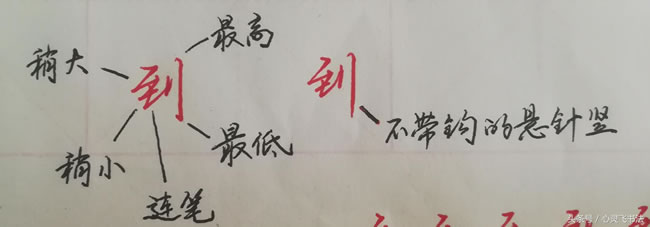 最高
稍大
到
到
不带钩的悬针竖
最低
稍小
连笔
头条号/心灵飞书法